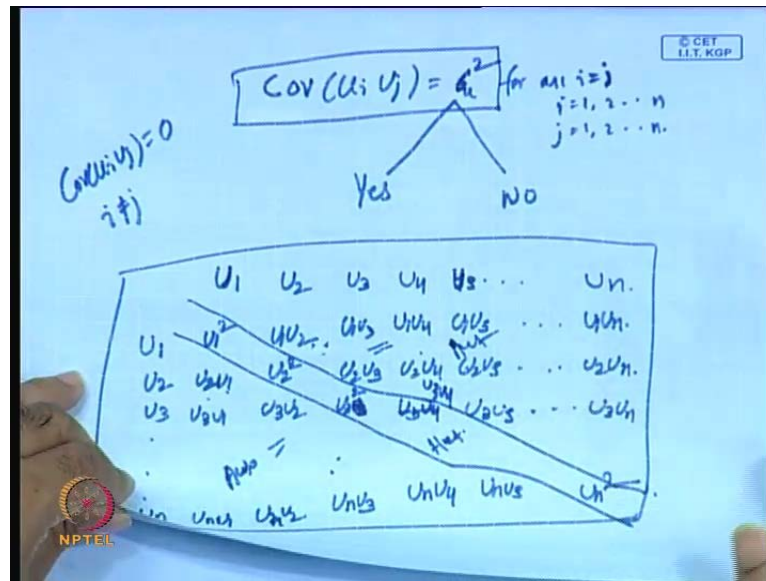 © CET
I.I.T. KGP
Cov (Ui Uj) = σu² for all i = j
i = 1, 2 ... n
j = 1, 2 ... n.
Cov(Ui Uj) = 0
i ≠ j
Yes NO
U1 U2 U3 U4 U5 ... Un.
U1 U1² U1U2 U1U3 U1U4 U1U5 ... U1Un.
U2 U2U1 U2² U2U3 U2U4 U2U5 ... U2Un.
U3 U3U1 U3U2 U3² U3U4 U3U5 ... U3Un
Auto
Un UnU1 UnU2 UnU3 UnU4 UnU5 Un²
NPTEL